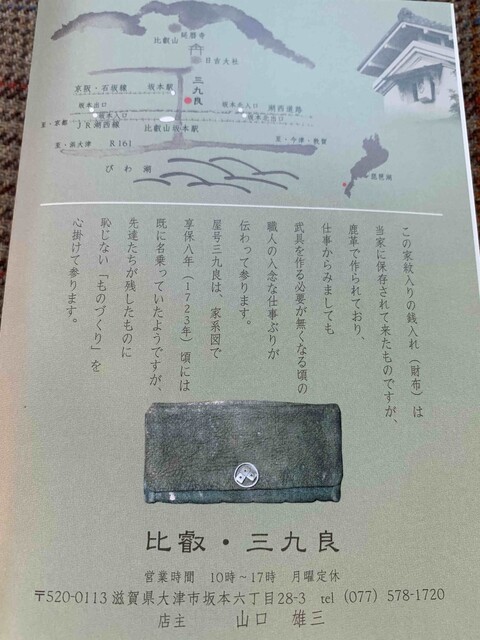 延暦寺
比叡山
日吉大社
三九良
京阪・石坂線 坂本駅
坂本出口
坂本入口
坂本北入口
湖西道路
坂本北出口
至・京都 JR湖西線
比叡山坂本駅
至・今津・敦賀
至・浜大津 R161
びわ湖
琵琶湖
この家紋入りの銭入れ（財布）は
当家に保存されて来たものですが、
鹿革で作られており、
仕事からみましても
武具を作る必要が無くなる頃の
職人の入念な仕事ぶりが
伝わって参ります。
屋号三九良は、家系図で
享保八年（1723年）頃には
既に名乗っていたようですが、
先達たちが残したものに
恥じない「ものづくり」を
心掛けて参ります。
比叡・三九良
営業時間 10時～17時 月曜定休
〒520-0113 滋賀県大津市坂本六丁目28-3 tel (077) 578-1720
店主 山口 雄三